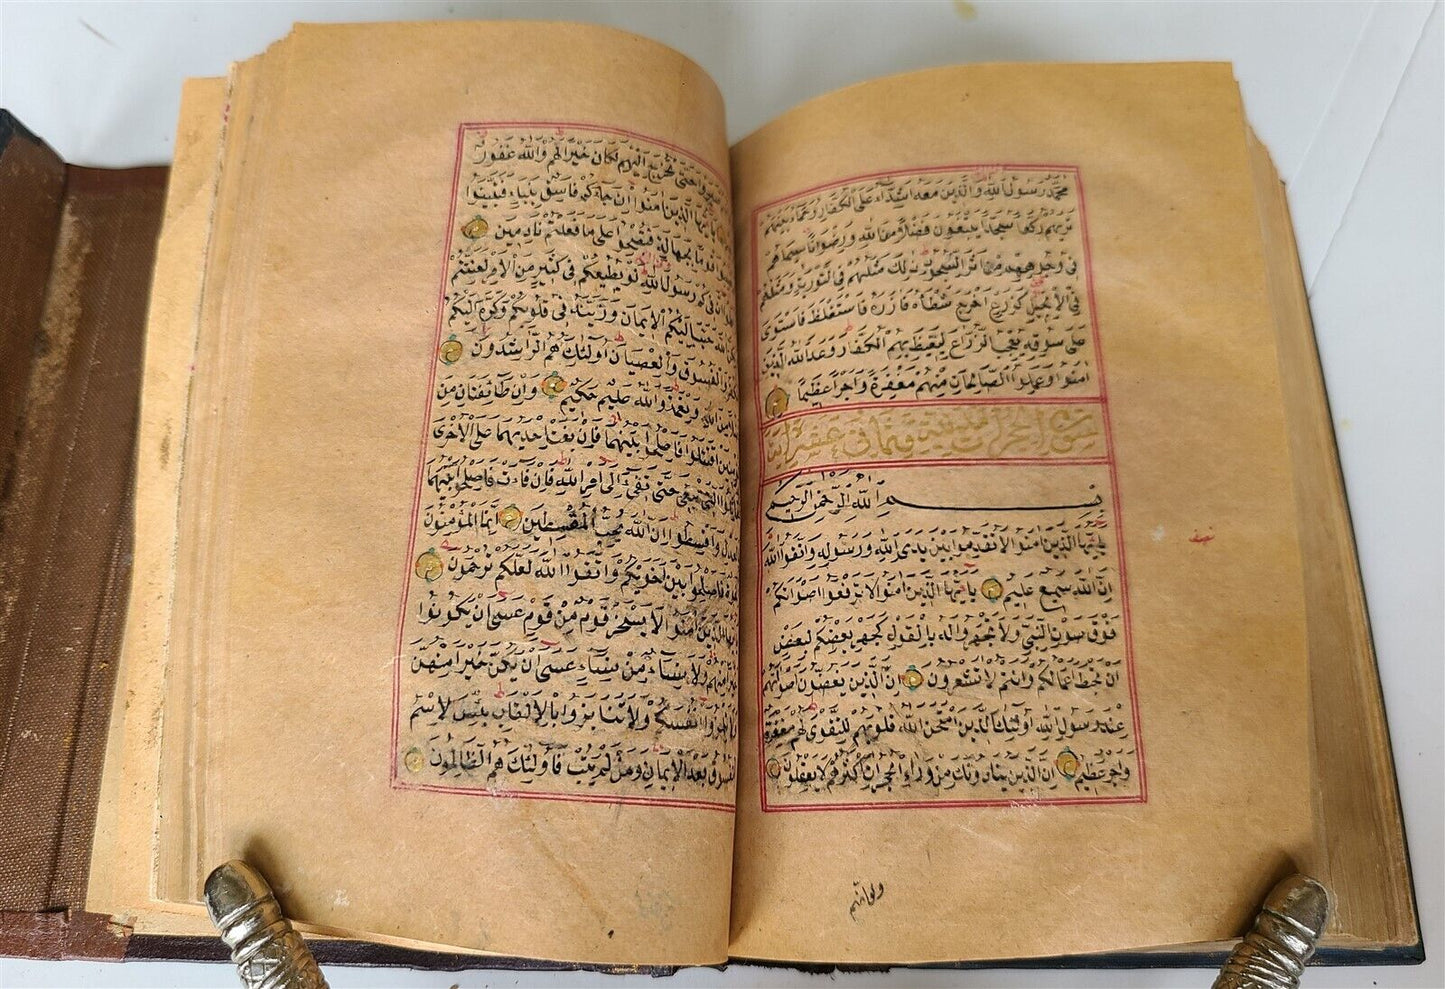 محمد رسول الله والذين معه اشداء على الكفار رحماء بينهم
تريهم ركعا سجدا يبتغون فضلا من الله ورضوانا سيماهم
فى وجوههم من اثر السجود ذلك مثلهم فى التورية ومثلهم
فى الانجيل كزرع اخرج شطأه فازره فاستغلظ فاستوى
على سوقه يعجب الزراع ليغيظ بهم الكفار وعد الله الذين
امنوا وعملوا الصالحات منهم مغفرة واجرا عظيما
سورة الحجرات مدنية وهى ثمانى عشرة اية
بسم الله الرحمن الرحيم
يا ايها الذين امنوا لا تقدموا بين يدى الله ورسوله واتقوا الله
ان الله سميع عليم يا ايها الذين امنوا لا ترفعوا اصواتكم
فوق صوت النبى ولا تجهروا له بالقول كجهر بعضكم لبعض
ان تحبط اعمالكم وانتم لا تشعرون ان الذين يغضون اصواتهم
عند رسول الله اولئك الذين امتحن الله قلوبهم للتقوى لهم مغفرة
واجر عظيم ان الذين ينادونك من وراء الحجرات اكثرهم لا يعقلون
ولو انهم
صبروا حتى تخرج اليهم لكان خيرا لهم والله غفور
يا ايها الذين امنوا ان جاءكم فاسق بنباء فتبينوا
قوما بجهالة فتصبحوا على ما فعلتم نادمين
ان فيكم رسول الله لو يطيعكم فى كثير من الامر لعنتم
الله حبب اليكم الايمان وزينه فى قلوبكم وكره اليكم
والفسوق والعصيان اولئك هم الراشدون
من الله ونعمة والله عليم حكيم وان طائفتان من
اقتتلوا فاصلحوا بينهما فان بغت احديهما على الاخرى
التى تبغى حتى تفىء الى امر الله فان فاءت فاصلحوا بينهما
واقسطوا ان الله يحب المقسطين انما المؤمنون
فاصلحوا بين اخويكم واتقوا الله لعلكم ترحمون
الذين امنوا لا يسخر قوم من قوم عسى ان يكونوا
منهم ولا نساء من نساء عسى ان يكن خيرا منهن
تلمزوا انفسكم ولا تنابزوا بالالقاب بئس الاسم
الفسوق بعد الايمان ومن لم يتب فاولئك هم الظالمون